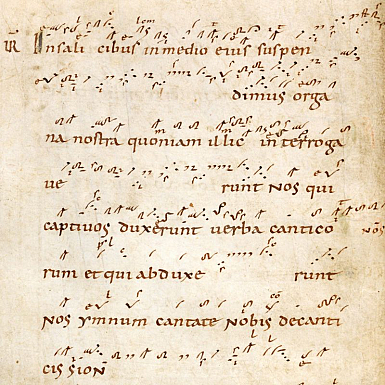 In sali cibus in medio eius suspen
dimus orga
na nostra quoniam illic interroga
ve runt Nos qui
captivos duxerunt verba cantico
rum et qui abduxe runt nos
Nos ymnum cantate nobis decanti
cis sion